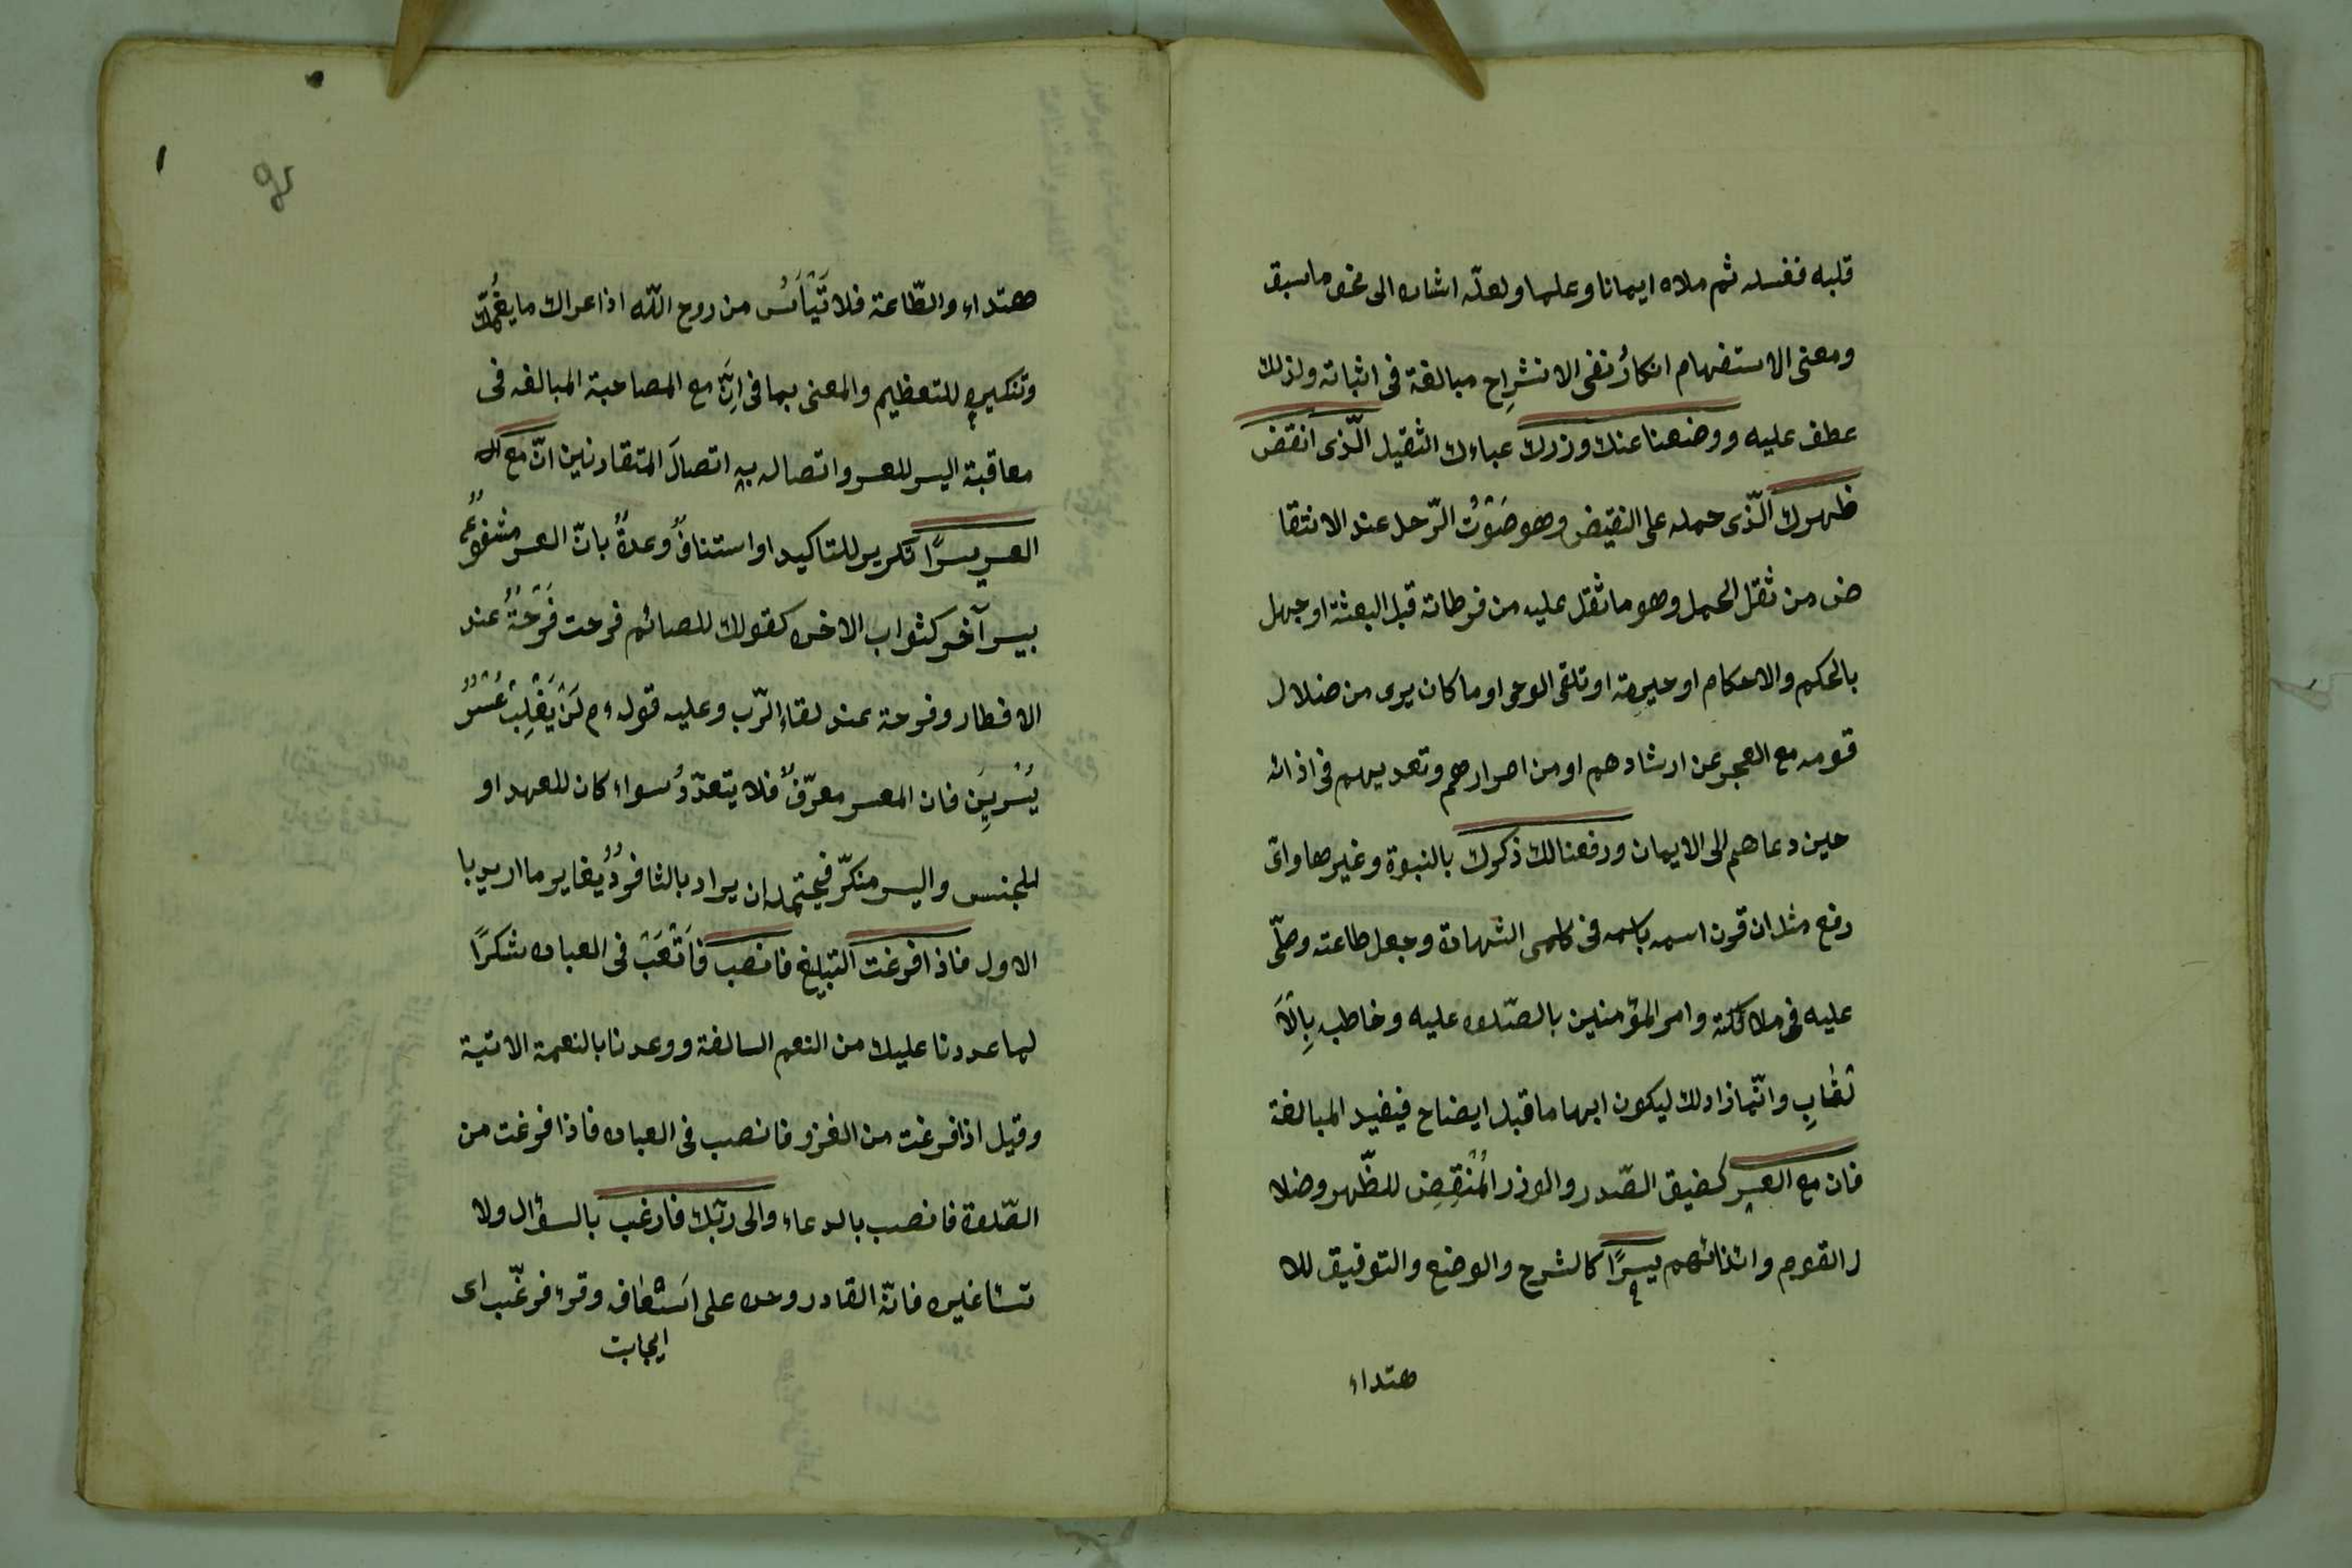 قلبه فغسله ثم ملاه ايمانا وعلما ولعلّه اشاره الى نحو ما سبق
ومعنى الاستفهام انكارُ نفى الانشرِاح مبالغة فى اثباته ولذلك
عطف عليه ووضعنا عنك وزرك عباءك الثقيل الّذى انقض
ظهرك الّذى حمله على النقيض وهو صَوْتُ الرّحل عند الانتقا
ض من ثقل الحمل وهو ما ثقل عليه من فرطاته قبل البعثة او جهل
بالحكم والاحكام او حيرته او تلقى الوحى او ما كان يرى من ضلال
قومه مع العجز عن ارشادهم او من اصرارهم وتعديهم فى اذائه
حين دعاهم الى الايمان ورفعنا لك ذكرك بالنبوة وغيرها واىّ
رفع مثل ان قرن اسمه باسمه فى كلمى الشهادة وجعل طاعته وصلّى
عليه فى ملائكته وامر المؤمنين بالصّلوه عليه وخاطبه بِالاَ
لقابِ وانّما زاد لك ليكون ابهاما قبل ايضاح فيفيد المبالغة
فان مع العسر كضيق الصّدر والوزر المُنْقِضِ للظّهر وضلا
ل القوم وايذائهم يسرًا كالشرح والوضع والتوفيق للا
هتداء
هتداء والطّاعة فلا تَيْأَسْ من روح اللّه اذا عراك ما يغُمّك
وتنكيره للتعظيم والمعنى بما فى اِنَّ مع المصاحبة المبالغه فى
معاقبة اليسر للعسر واتصاله به اتصالَ المتقارنين انّ مع ال
العسر يسرًا تكرير للتاكيد او استنافٌ وعدهٌ بانّ العسر مشفوعٌ
بيسر آخر كثواب الاخره كقولك للصائم فرحت فَرْحَةٌ عند
الافطار وفرحة عند لقاء الرّب وعليه قوله ءم لَنْ يَغْلِبَ عُسْرٌ
يُسْرَيِنِ فان العسر معرّفٌ فلا يتعدّدُ سواء كان للعهد او
للجنس واليسر منكّر فيحتمل ان يراد بالثا فردٌ يغاير ما اريد با
الاول فاذا فرغت التبليغ فانصب فَاَتْعَبْ فى العباده شكرًا
لما عددنا عليك من النعم السالفة ووعدنا بالنعمة الاتية
وقيل اذا فرغت من الغزو فانصب فى العباده فاذا فرغت من
الصّلوة فانصب بالدعاء والى ربّك فارغب بالسؤال ولا
تسئا غيره فانّه القادر وحده على اَسْعاف وقرء فرغّب اى
ايجابت